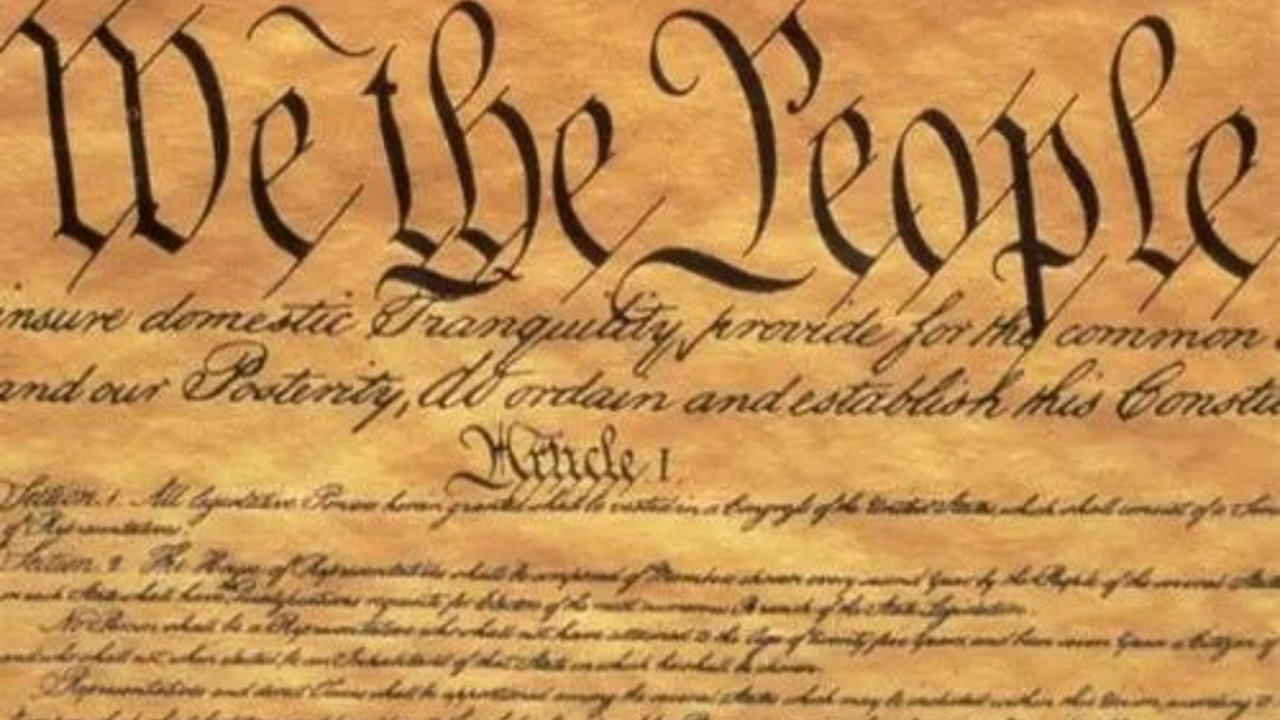 We the People
insure domestic Tranquility, provide for the common
and our Posterity, do ordain and establish this Constitu
Article I.
Section. 1. All legislative Powers herein granted shall be vested in a Congress of the United States, which shall consist of a Sen
of Representatives.
Section. 2. The House of Representatives shall be composed of Members chosen every second Year by the People of the several States
in each State shall have Qualifications requisite for Electors of the most numerous Branch of the State Legislature.
No Person shall be a Representative who shall not have attained to the Age of twenty five Years, and been seven Years a Citizen of
and who shall not, when elected, be an Inhabitant of that State in which he shall be chosen.
Representatives and direct Taxes shall be apportioned among the several States which may be included within this Union, according to